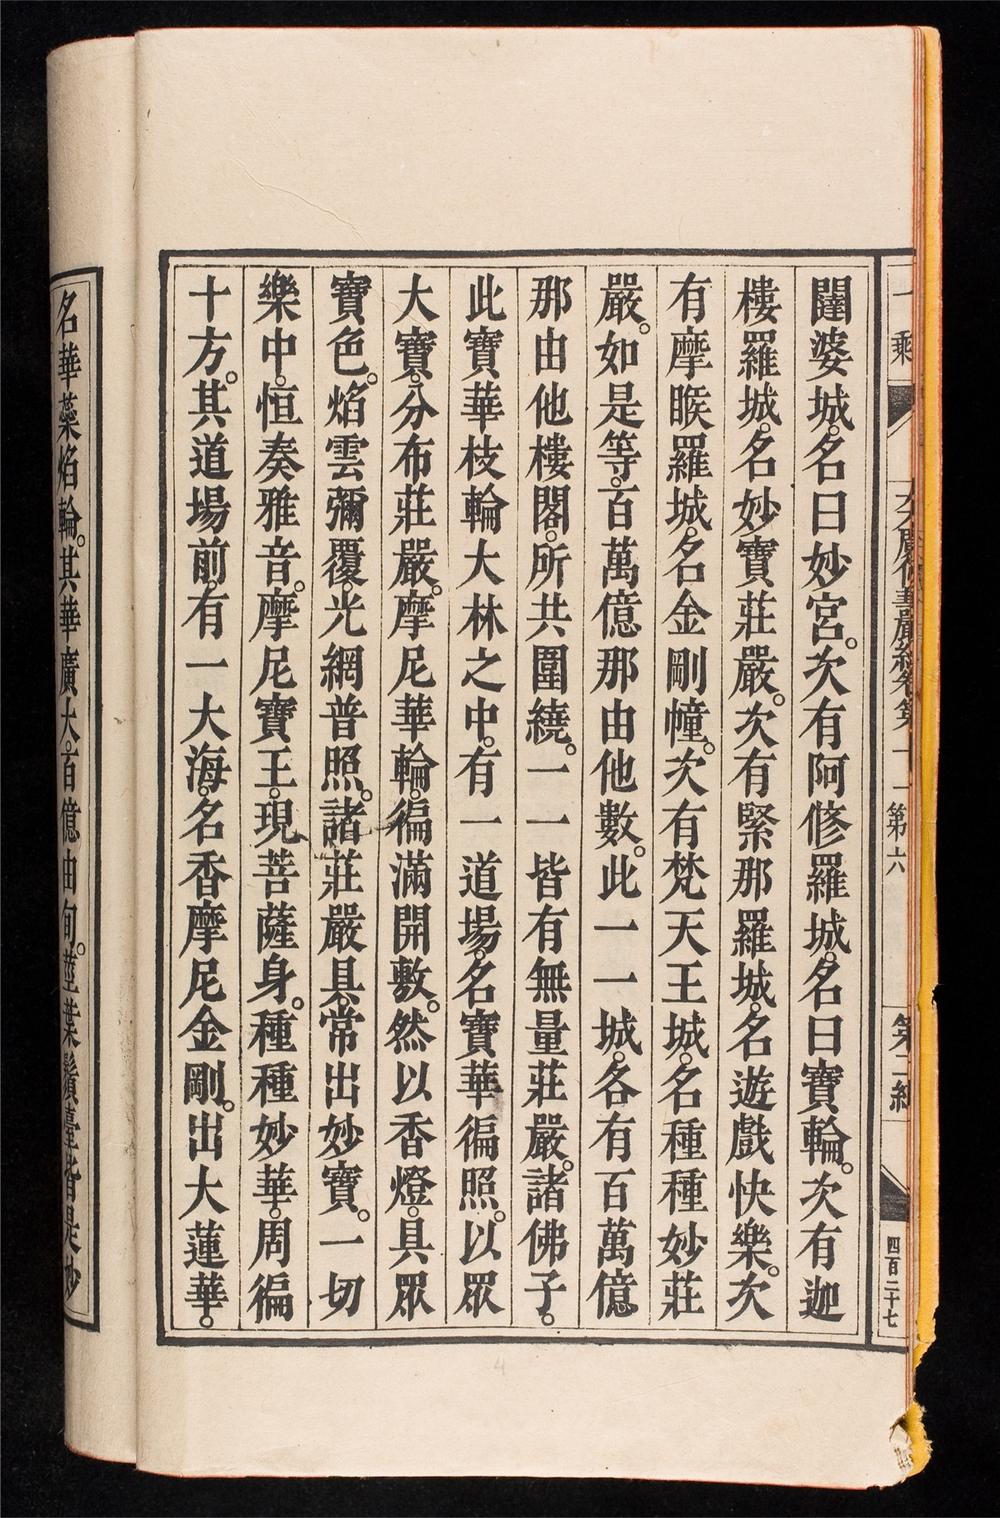 闥婆城。名曰妙宮。次有阿修羅城。名曰寶輪。次有迦
樓羅城。名妙寶莊嚴。次有緊那羅城。名遊戲快樂。次
有摩睺羅城。名金剛幢。次有梵天王城。名種種妙莊
嚴。如是等。百萬億那由他數。此一一城。各有百萬億
那由他樓閣。所共圍繞。一一皆有無量莊嚴。諸佛子。
此寶華枝輪大林之中。有一道場。名寶華徧照。以眾
大寶。分布莊嚴。摩尼華輪。徧滿開敷。然以香燈。具眾
寶色。焰雲彌覆。光網普照。諸莊嚴具。常出妙寶。一切
樂中。恒奏雅音。摩尼寶王。現菩薩身。種種妙華。周徧
十方。其道場前。有一大海。名香摩尼金剛。出大蓮華。
名華蘂焰輪。其華廣大。百億由旬。莖葉鬚臺。皆是妙
大廣佛華嚴經卷第十一 第六
四百二十七